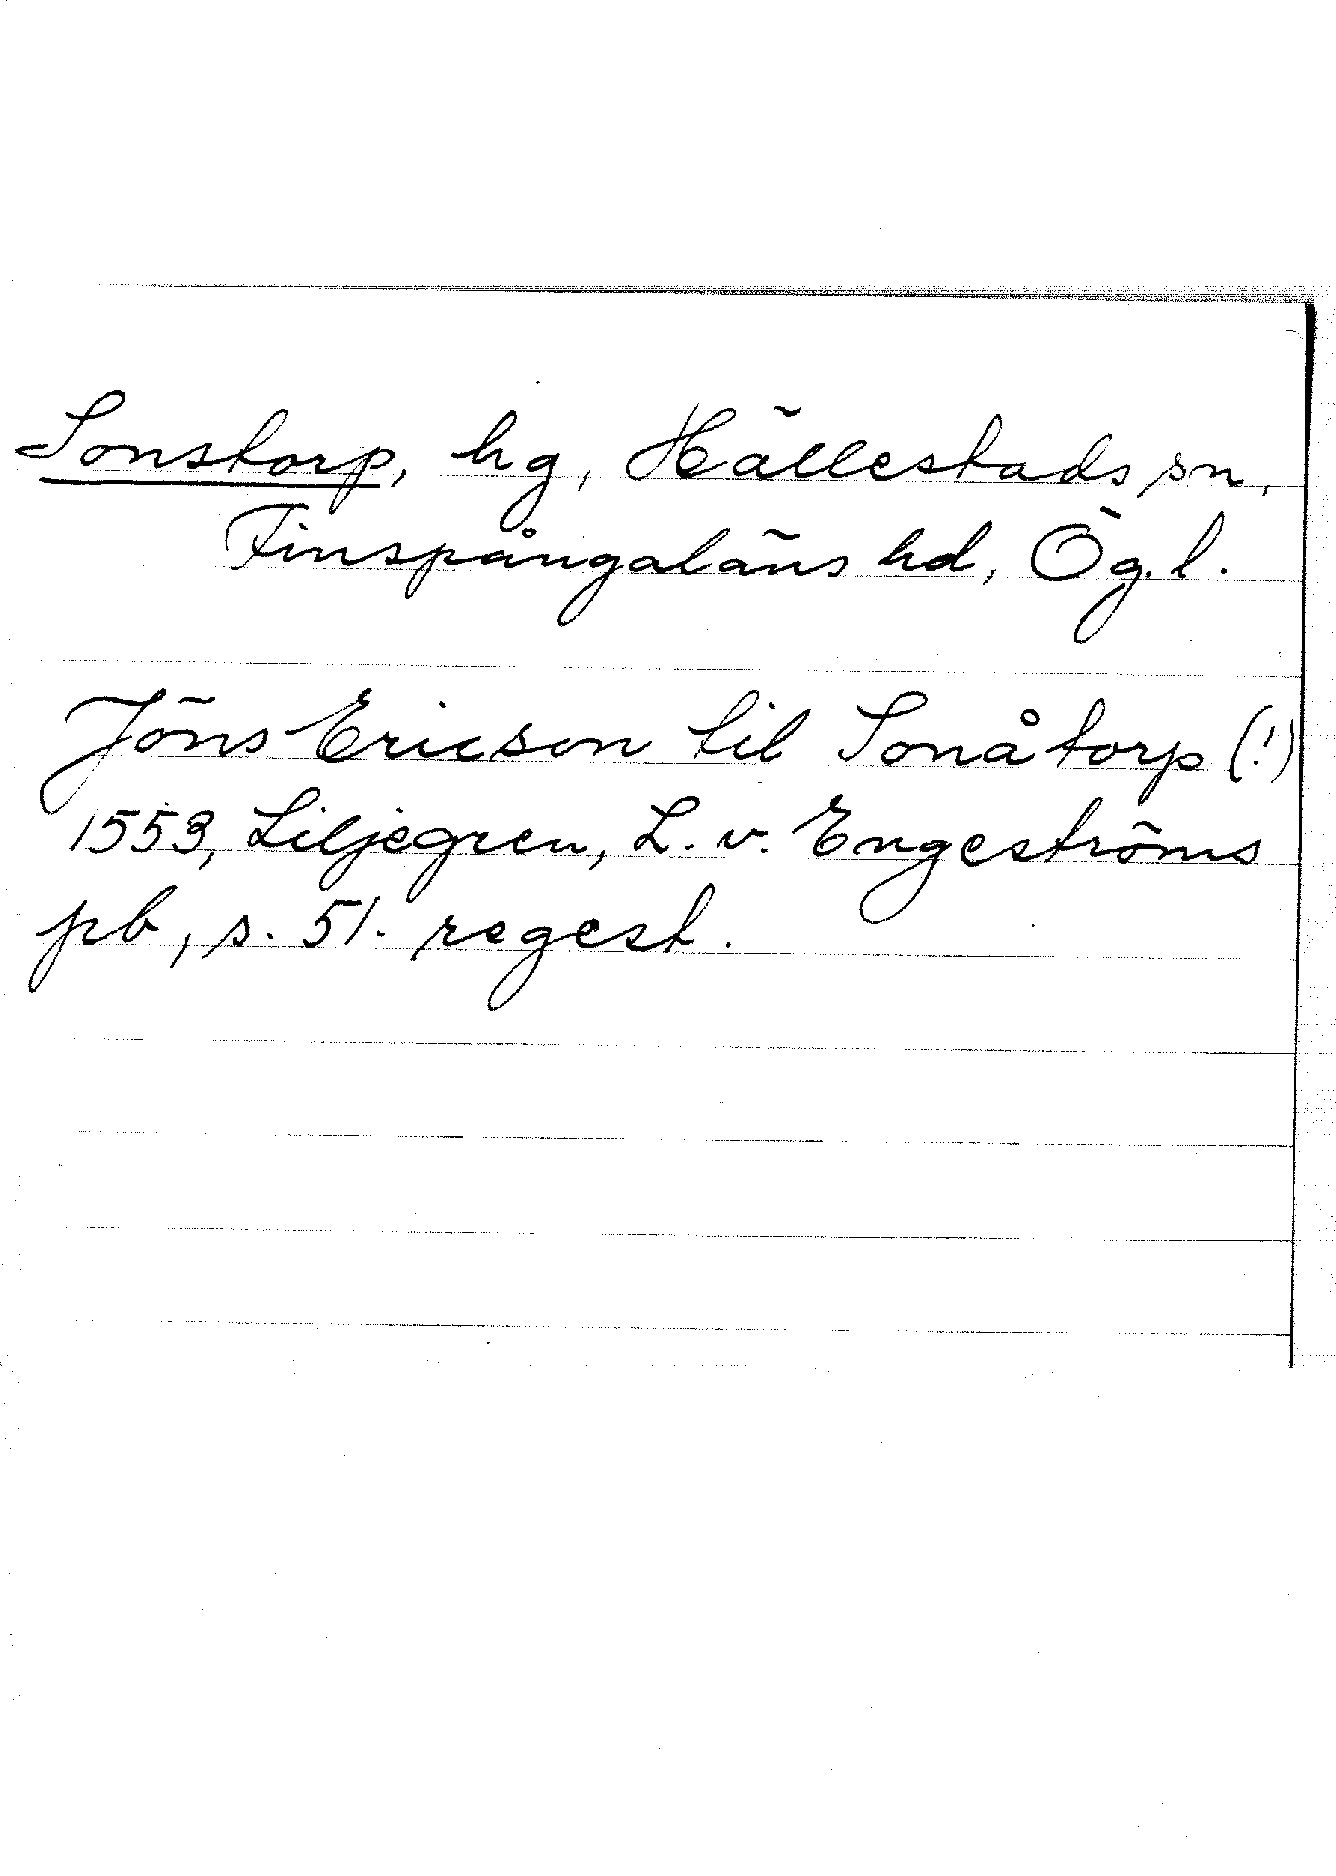 Sonstorp, hg, Hällestads sn,
Finspångaläns hd, Ög. l.
Jöns Ericson til Sonåtorp (!)
1553, Liljegren, L. v. Engeströms
pb, s. 51. regest.